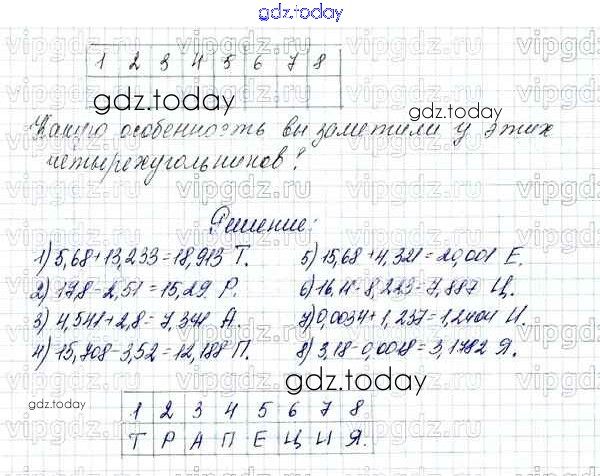 gdz.today
1 2 3 4 5 6 7 8
gdz.today
gdz.today
Какую особенность вы заметили у этих
четырехугольников?
Решение:
1) 5,68+13,233=18,913 Т.
5) 15,68+4,321=20,001 Е.
2) 17,8-2,51=15,29 Р.
6) 16,11-8,223=7,887 Ц.
3) 4,541+2,8=7,341 А.
7) 0,0034+1,237=1,2404 И.
4) 15,708-3,52=12,188 П.
8) 3,18-0,0018=3,1782 Я.
gdz.today
gdz.today
1 2 3 4 5 6 7 8
Т Р А П Е Ц И Я.
gdz.today